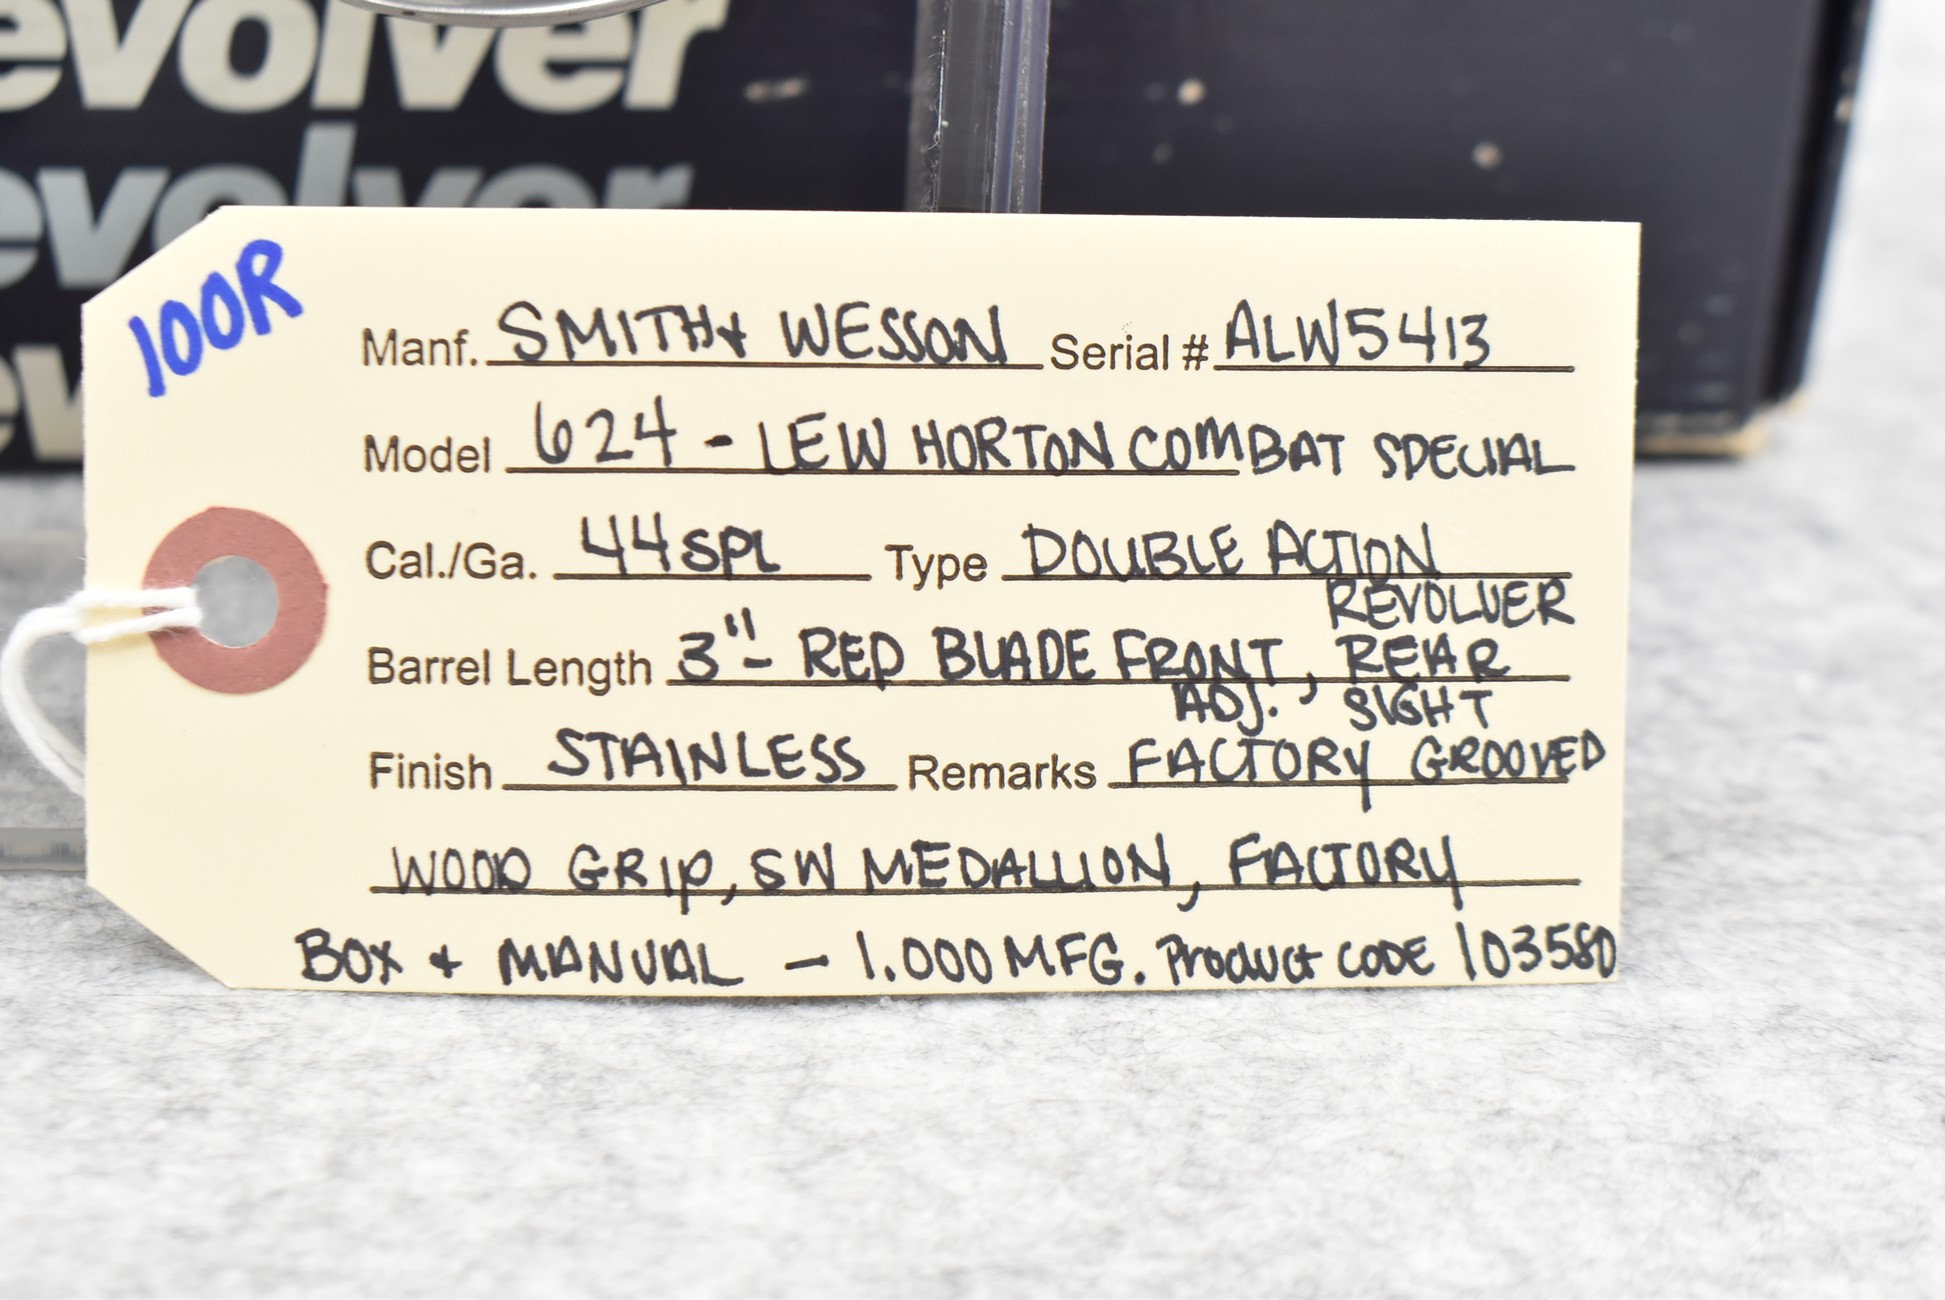 evolver
evolver
ev
100R
Manf. SMITH & WESSON Serial # ALW5413
Model 624 - LEW HORTON COMBAT SPECIAL
Cal./Ga. 44 SPL Type DOUBLE ACTION
REVOLVER
Barrel Length 3" - RED BLADE FRONT, REAR
ADJ. SIGHT
Finish STAINLESS Remarks FACTORY GROOVED
WOOD GRIP, SW MEDALLION, FACTORY
BOX & MANUAL - 1.000 MFG. Product CODE 103580